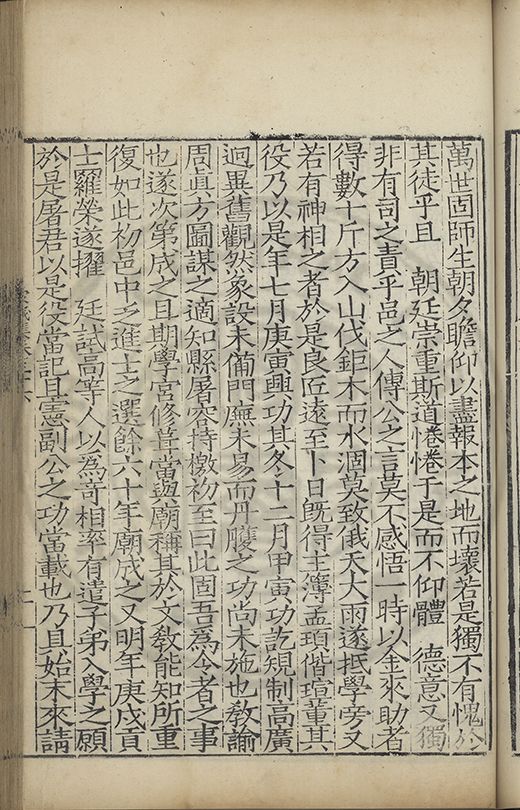 萬世固師生朝夕瞻仰以盡報本之地而壞若是獨不有愧於
其徒乎且　朝廷崇重斯道惓惓于是而不仰體　德意又獨
非有司之責乎邑之人傳公之言莫不感悟一時以金來助者
得數十斤方入山伐鉅木而水涸莫致俄天大雨遂抵學旁又
若有神相之者於是良匠遠至卜日旣得主簿孟頊偕瑄董其
役乃以是年七月庚寅興功其冬十二月甲寅功訖規制高廣
迥異舊觀然象設未備門廡未易而丹雘之功尚未施也教諭
周眞方圖謀之適知縣屠容持檄初至曰此固吾爲令者之事
也遂次第成之且期學宫修葺當與廟稱其於文敎能知所重
復如此初邑中乏進士之選餘六十年廟成之又明年庚戌貢
士羅榮遂擢　廷試高等人以爲奇相率有遣子弟入學之願
於是屠君以是役當記且憲副公之功當載也乃具始末來請